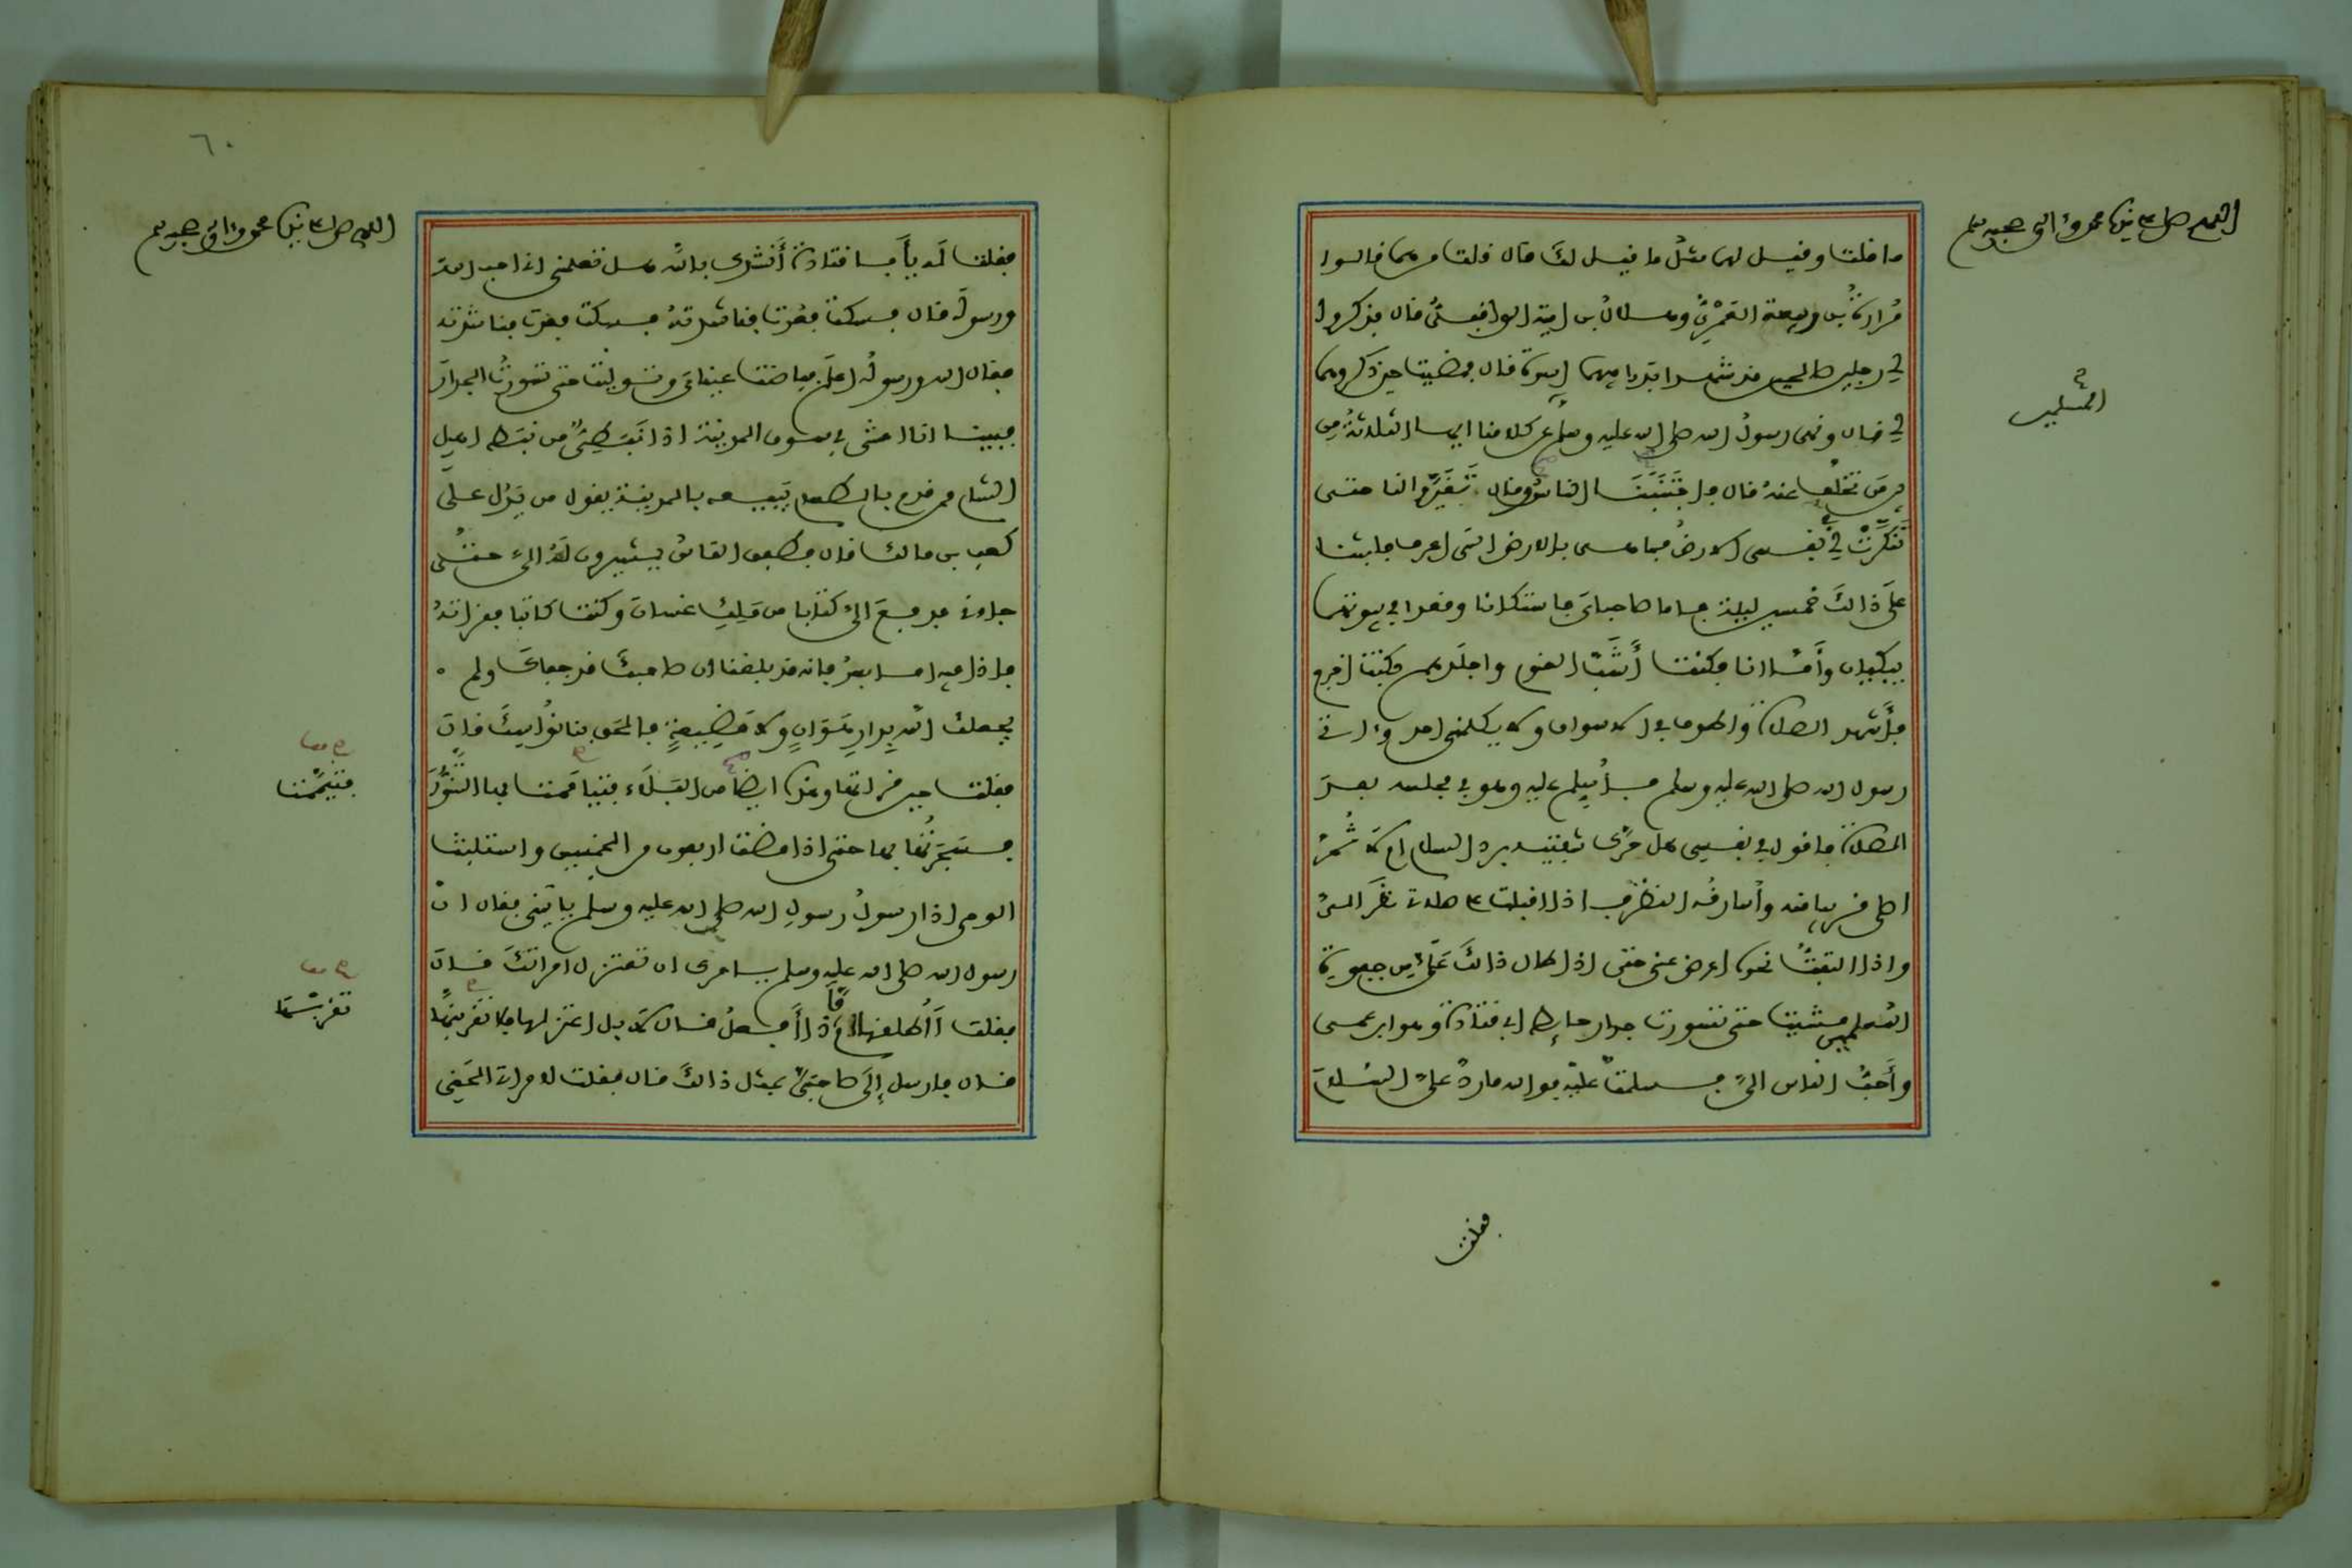 اللهم صل على نبينا محمد وءاله وصحبه وسلم
ما قلت وقيل لهما مثل ما قيل لك قال قلت من هما قالوا
مرارة بن ربيعة العمري وهلال بن امية الواقفي قال فذكروا
لي رجلين صالحين قد شهدا بدرا فيهما اسوة قال فمضيت حين ذكروهما
لي قال ونهى رسول الله صلى الله عليه وسلم عن كلامنا ايها الثلاثة من
بين من تخلف عنه قال فاجتنبنا الناس وقال تغيروا لنا حتى
تنكرت لي في نفسي الارض فما هي بالارض التي اعرف فلبثنا
على ذالك خمسين ليلة فاما صاحباي فاستكانا وقعدا في بيوتهما
يبكيان وأما انا فكنت أشب القوم واجلدهم فكنت اخرج
فأشهد الصلاة واطوف في الاسواق ولا يكلمني احد وءاتي
رسول الله صلى الله عليه وسلم فأسلم عليه وهو في مجلسه بعد
الصلاة فاقول في نفسي هل حرك شفتيه برد السلام ام لا ثم
اصلي قريبا منه وأسارقه النظر فاذا اقبلت على صلاتي نظر الي
واذا التفت نحوه اعرض عني حتى اذا طال ذالك علي من جفوة
المسلمين مشيت حتى تسورت جدار حايط ابي قتادة وهو ابن عمي
وأحب الناس الي فسلمت عليه فوالله ما رد علي السلام
المسلمين
فقلت
٦٠
اللهم صل على نبينا محمد وءاله وصحبه وسلم
فقلت له يأبا قتادة أنشدك بالله هل تعلمني اني احب الله
ورسوله قال فسكت فعدت فناشدته فسكت فعدت فناشدته
فقال الله ورسوله اعلم ففاضت عيناي وتوليت حتى تسورت الجدار
فبينا انا امشي في سوق المدينة اذا نبطي من نبط اهل
الشام ممن قدم بالطعام يبيعه بالمدينة يقول من يدل على
كعب بن مالك قال فطفق الناس يشيرون له الي حتى
جاءني فدفع الي كتابا من ملك غسان وكنت كاتبا فقرأته
فاذا فيه اما بعد فانه قد بلغنا ان صاحبك قد جفاك ولم
يجعلك الله بدار هوان ولا مضيعة فالحق بنا نواسك قال
فقلت حين قرأتها وهذا ايضا من البلاء فتياممت بها التنور
فسجرتها بها حتى اذا مضت اربعون من الخمسين واستلبث
الوحي اذا رسول رسول الله صلى الله عليه وسلم يأتيني فقال ان
رسول الله صلى الله عليه وسلم يامرك ان تعتزل امراتك قال
فقلت أأطلقها أم ماذا أفعل قال لا بل اعتزلها فلا تقربنها
قال فارسل إلى صاحبي بمثل ذالك قال فقلت لامراتي الحقي
فتيممت
تقربنها